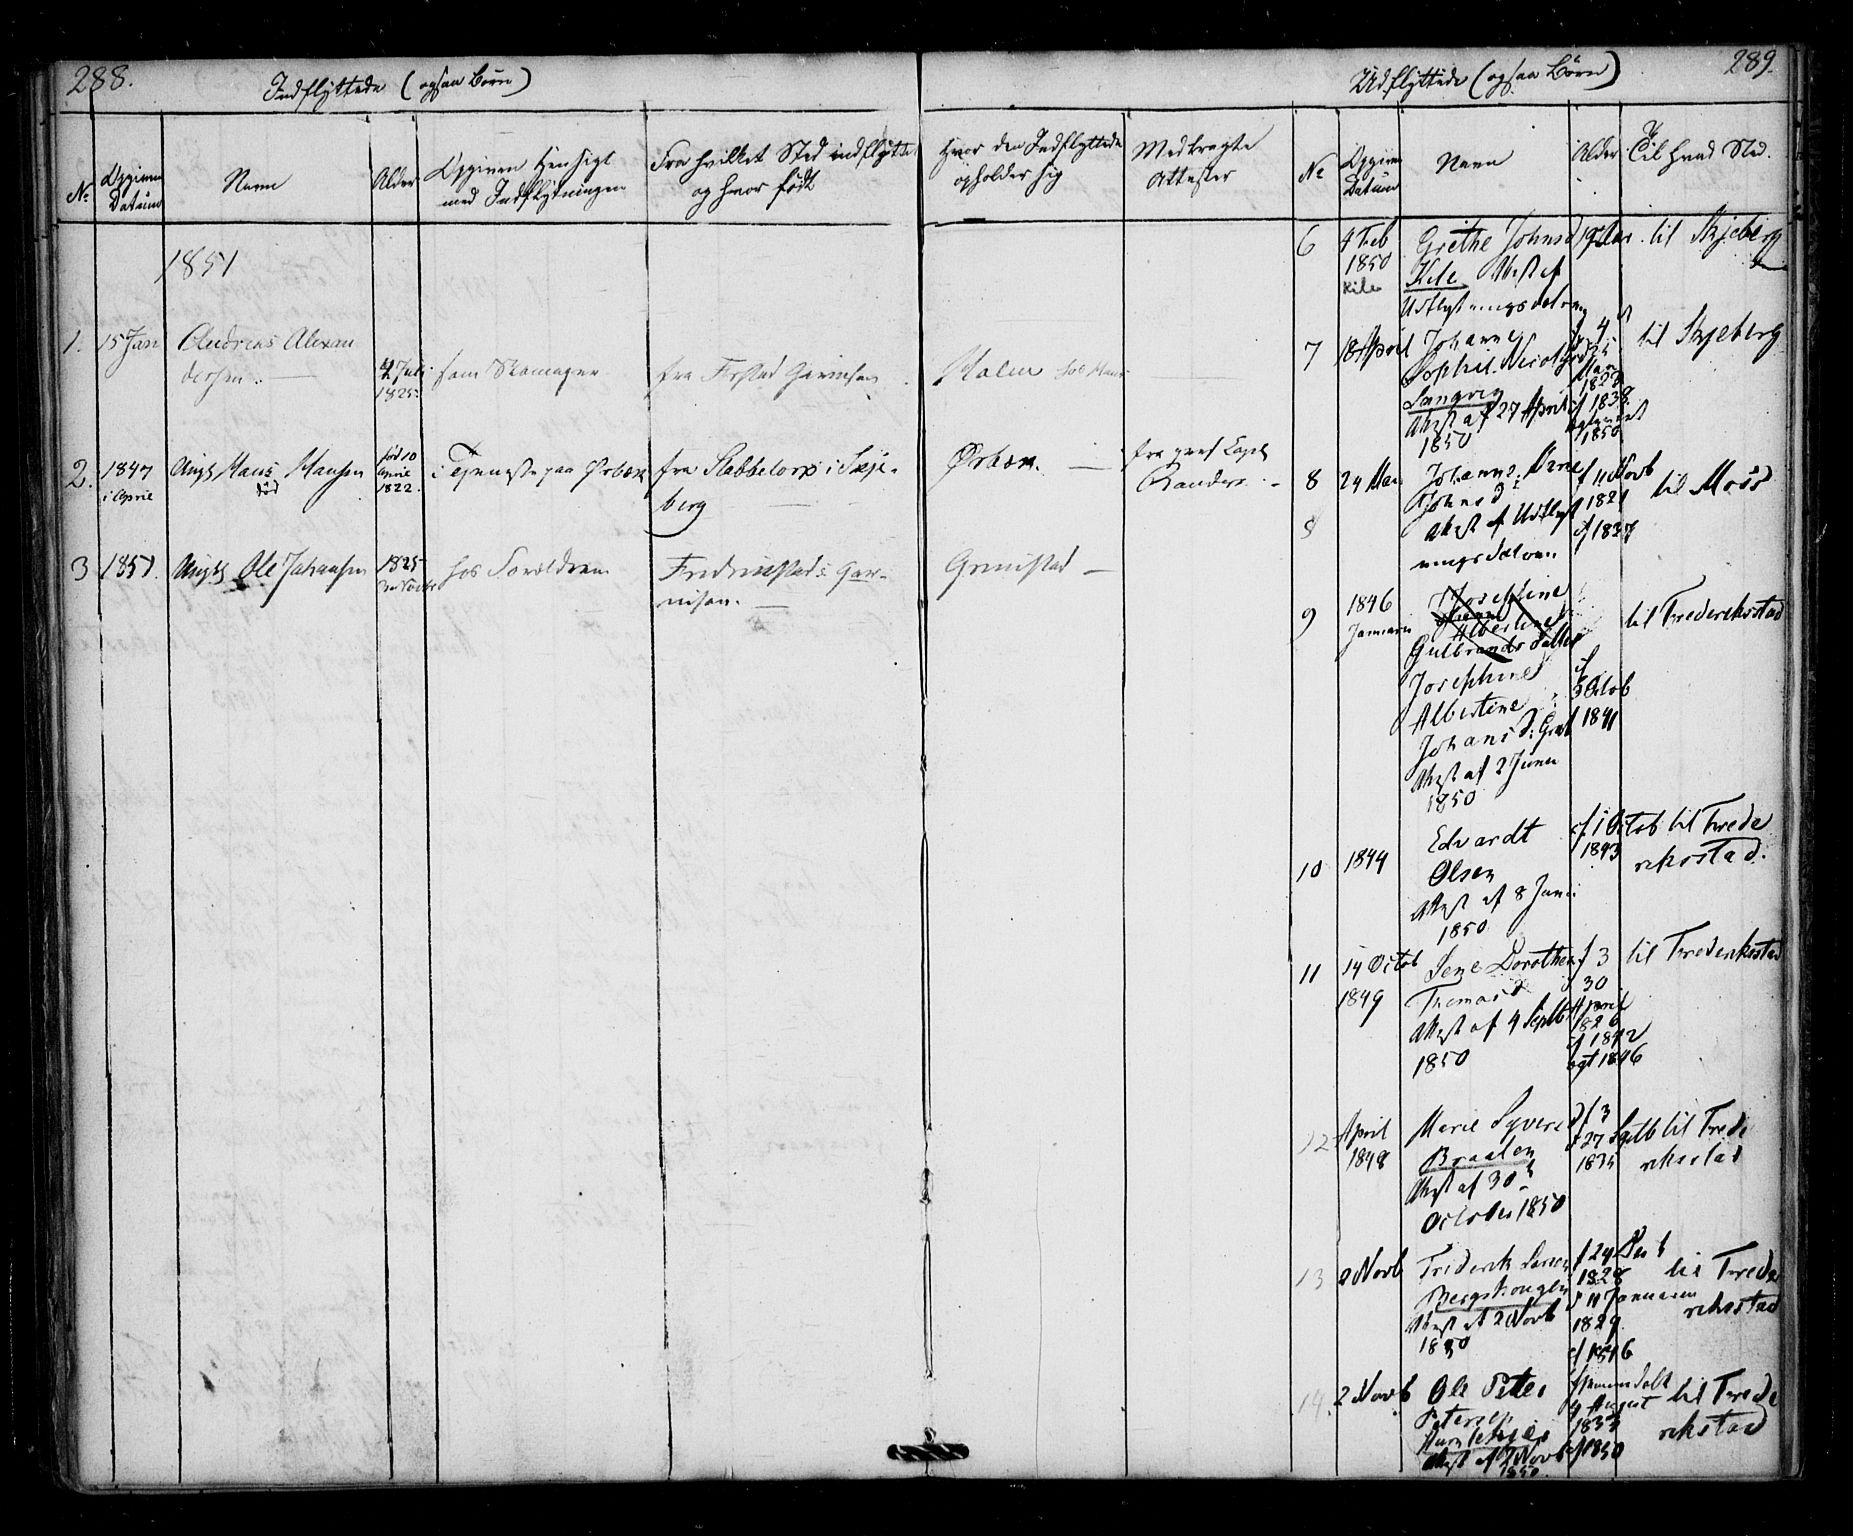 288.
Indflyttede (ogsaa Børn)
No
Opgiven Datum
Navn
Alder
Opgiven Hensigt med Indflytningen
Fra hvilket Sted indflyttet og hvor født
Hvor den Indflyttede opholder sig
Medbragte Attester
1851
1. 15 Jan Andreas Alexan
dersen.
Juli
1825
som Skomager
fra
2. 1847
i April
Hans Hansen
fød 10
April
1822.
i Tjeneste paa Ørbæk
fra Stabbetorp i Skje-
berg
Ørbæk.
fra
3 1851. Ole Johansen
1825
hos Forældrene
Fredriksstads Gar-
nison.
Grimstad
289.
Udflyttede (ogsaa Børn)
No
Opgiven Datum
Navn
Alder
Til hvad Sted.
6 4 Feb
1850
Kile
Grethe Johnsd
Kile Attest af
Udflytningsdatoen
til Skjeberg
7 18 April Johanne
Sophie Nicoly
Attest af 27 April
1850
4
25
Mai
1823
1838
1850
til Skjeberg
8 24 Mai
Johanne
Johnsd
Attest af Udflyt
ningsdatoen
f 11 Novb
1821
1837
til Moss
9 1846
Januari
Josephine
Albertine
Gulbrands datter
Josephine
Albertine
Johansd:
Attest af 2 Juni
1850
f
3 Octob
1841
til Frederikstad
10 1844
Edvardt
Olsen
Attest af 8 Juni
1850
f 1 Octob
1843
til Frede
rikstad.
11 14 Octob
1849
Lene Dorothea
Thomasd
Attest af 4 Septb
1850
f 3
30
April
1826
1842
1846
til Frederikstad
12 April
1848
Marie Syversd
Braaten
Attest af 30
October 1850
f 3
27 Septb
1835
til Frede
rikstad
13 2 Novb Frederik Larsen
Attest af 2 Novb
1850
f 24 Decb
1828
11 Januar
1829
1846
til Frede
rikstad
14. 2 Novb Ole Peter
Petersen
Attest af 2 Novb
1850.
4 August
1833
1850
til Frede
rikstad